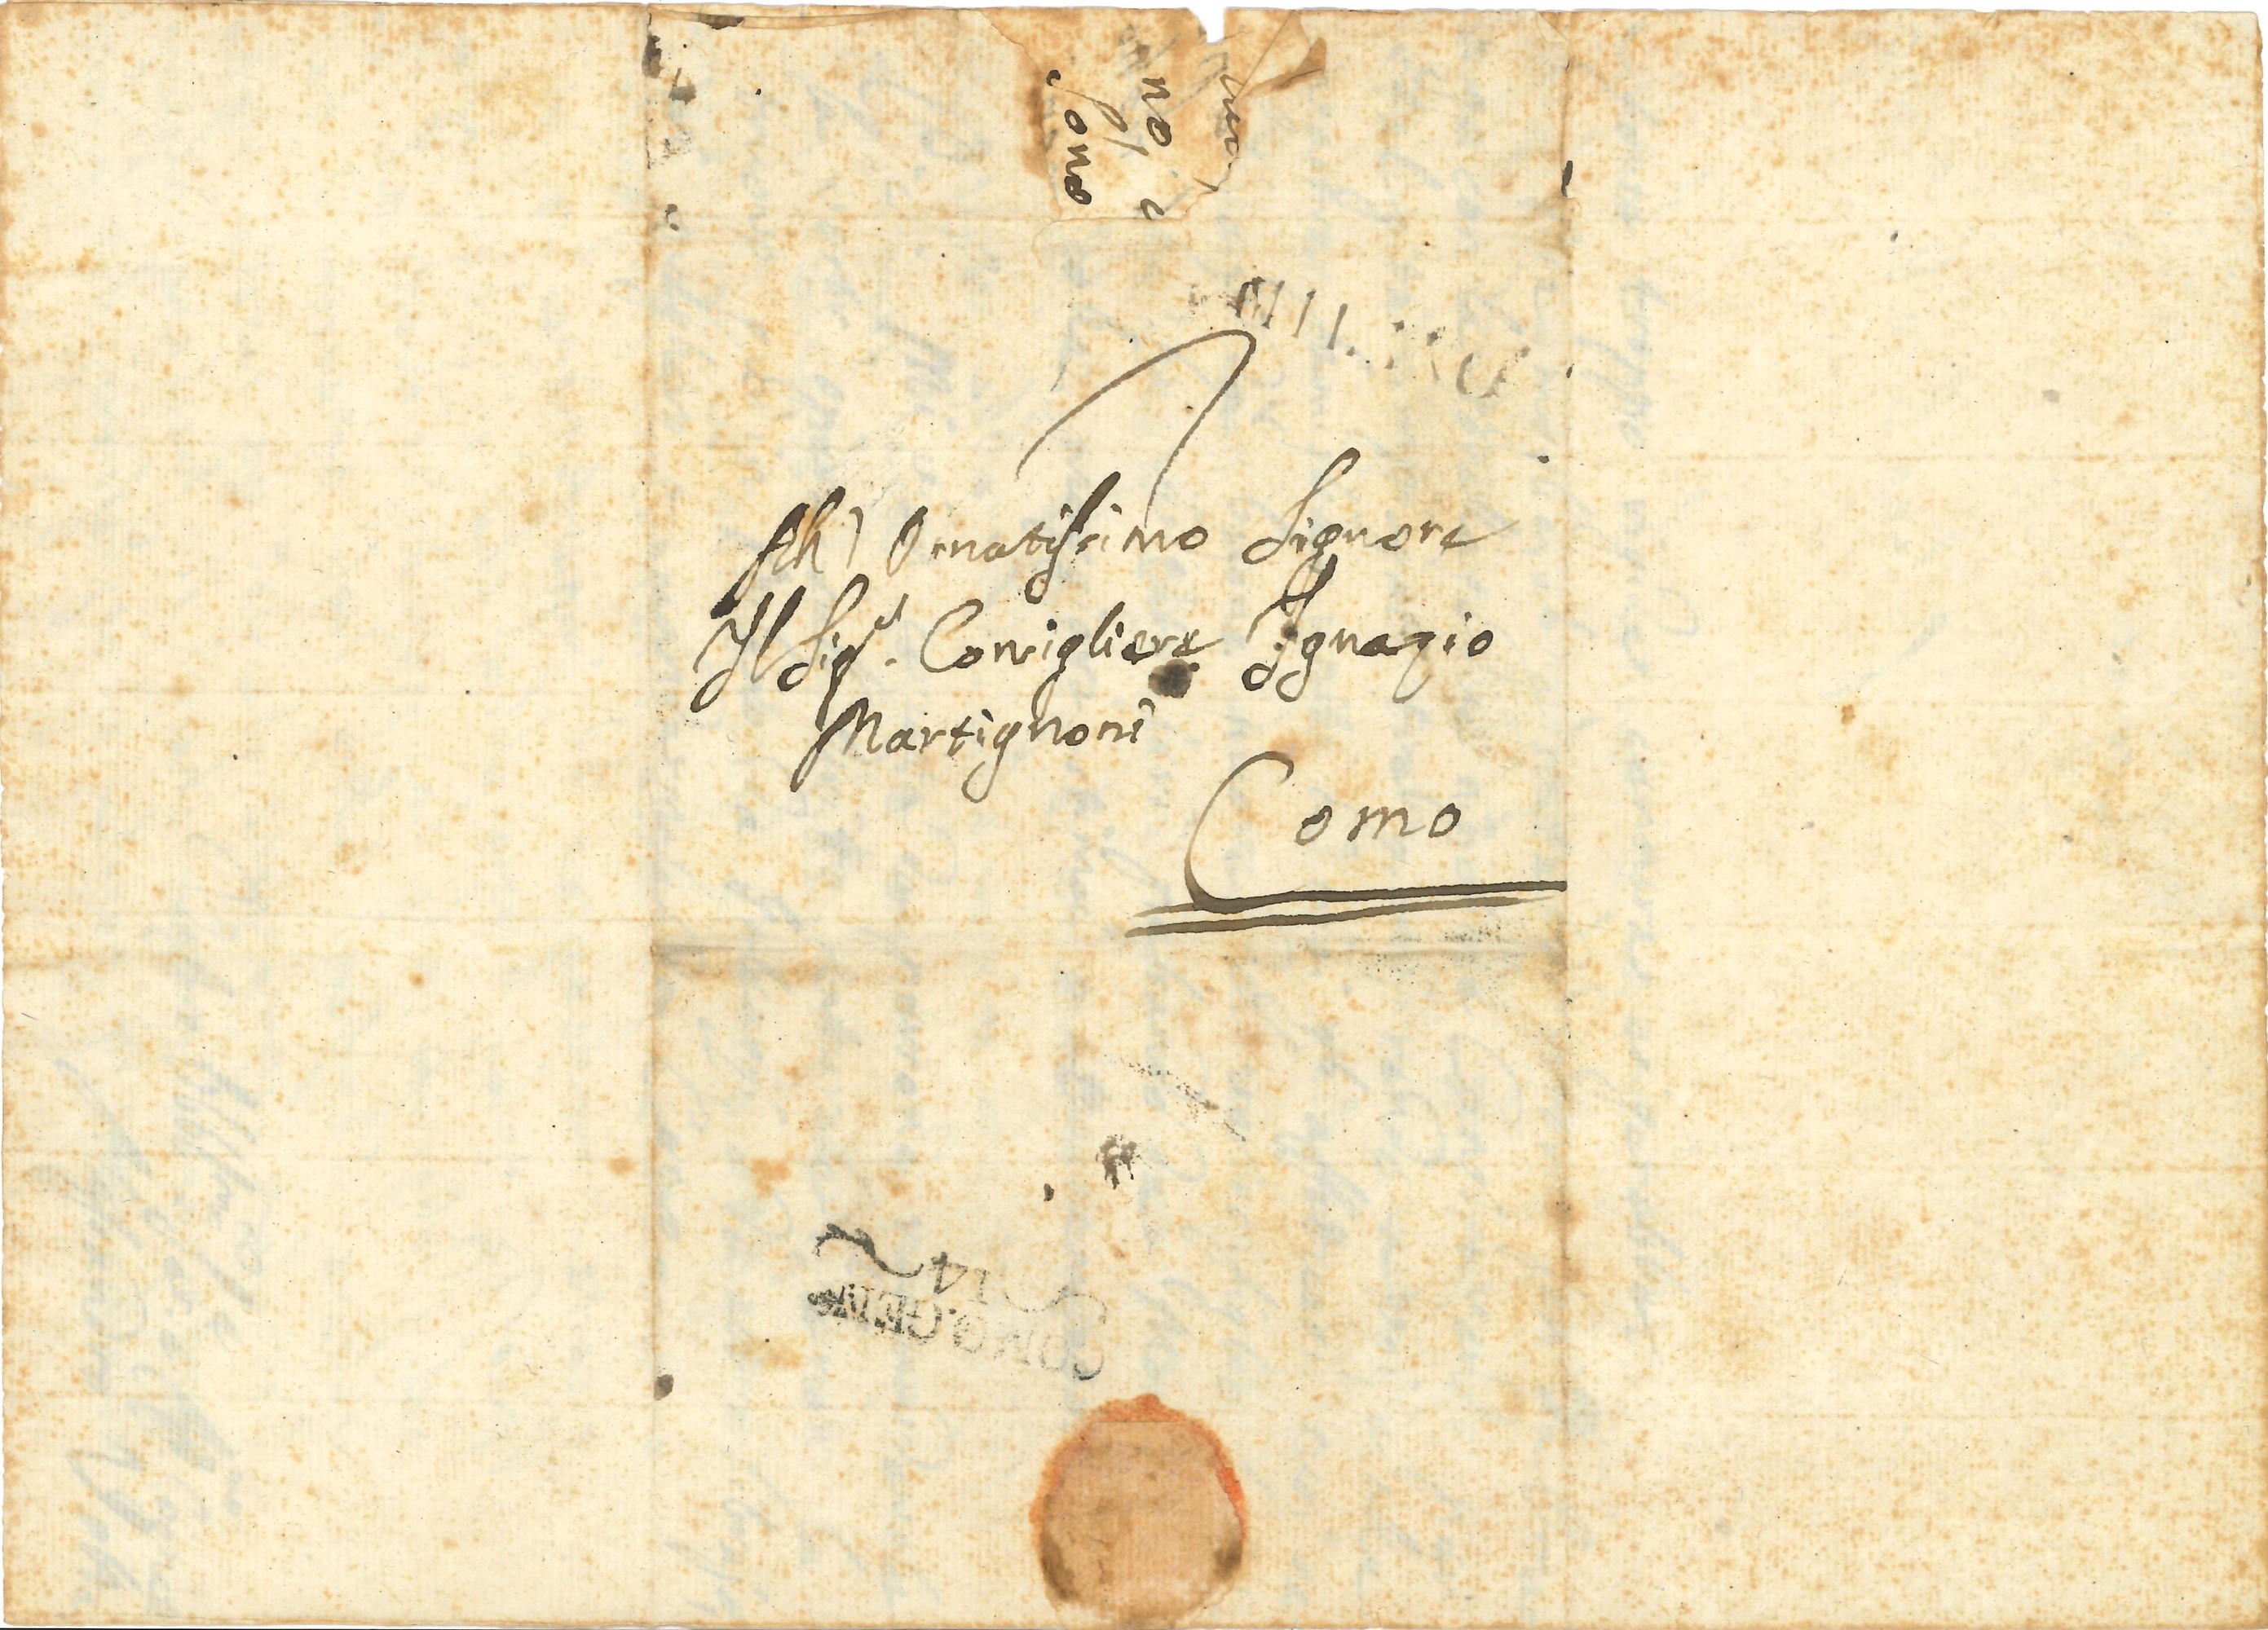 All' Ornatissimo Signore
Il Sigr. Consigliere Ignazio
Martignoni
Como
MILANO
14
COMO GEN.
no
ono